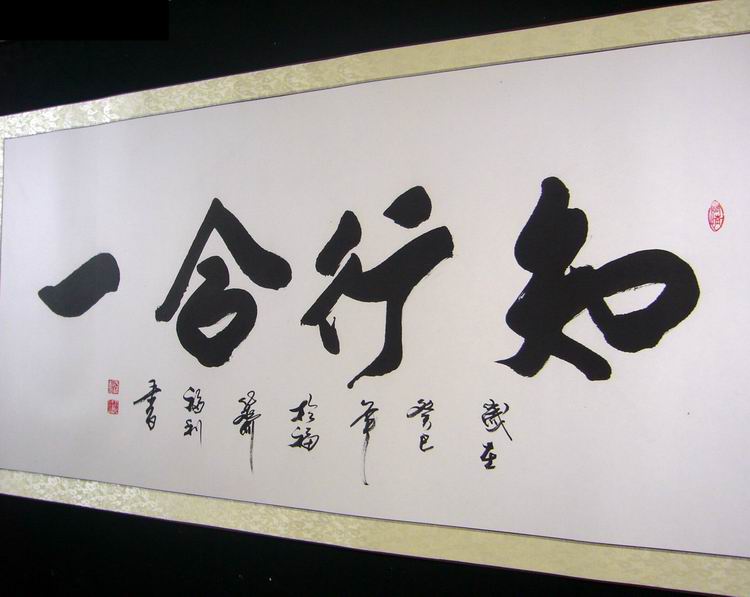 知行合一
歲在
癸巳
年
於福
福利
書